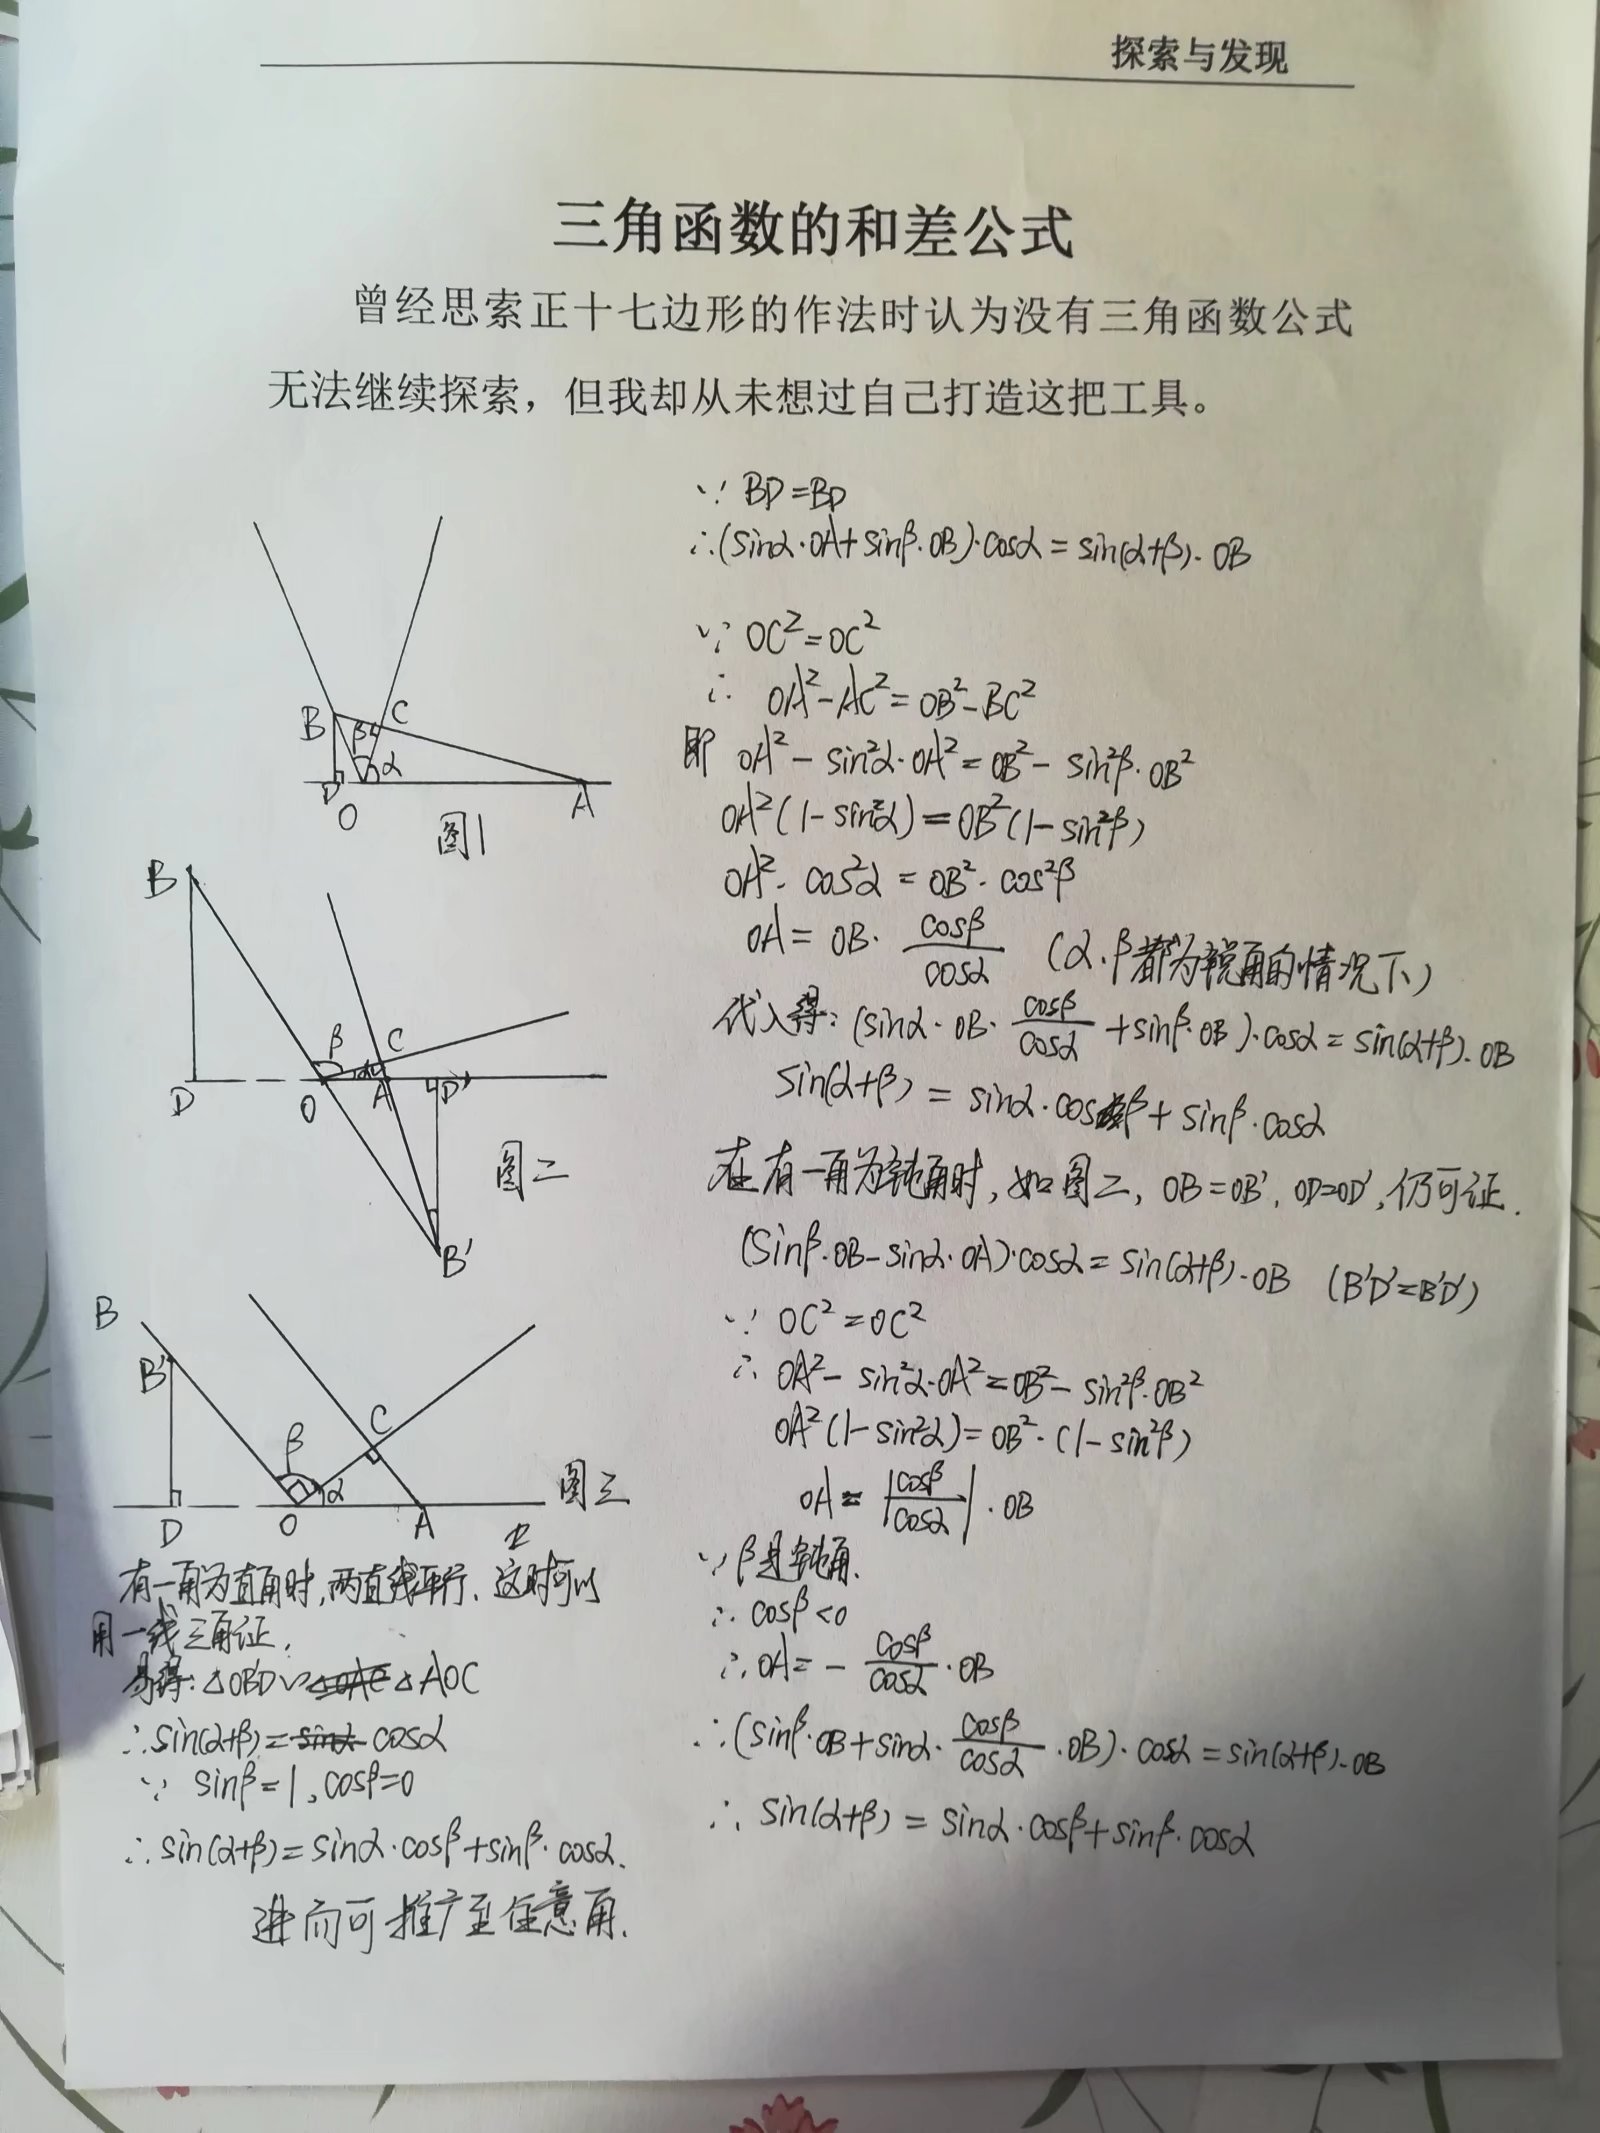 探索与发现
三角函数的和差公式
曾经思索正十七边形的作法时认为没有三角函数公式
无法继续探索，但我却从未想过自己打造这把工具。
B β C α D O A
图1
B β C α D O A D' B'
图二
B B' β C α D O A
图三
有一角为直角时,两直线平行.这时可以
用一线三角证.
易得:△OB'D∽△AOC
∴sin(α+β)=cosα
∵ sinβ=1,cosβ=0
∴sin(α+β)=sinα·cosβ+sinβ·cosα.
进而可推广至任意角.
∵ BD=BD
∴(sinα·OA+sinβ·OB)·cosα=sin(α+β)·OB
∵ OC²=OC²
∴ OA²-AC²=OB²-BC²
即 OA²-sin²α·OA²=OB²-sin²β·OB²
OA²(1-sin²α)=OB²(1-sin²β)
OA²·cos²α=OB²·cos²β
OA=OB·cosβ/cosα (α.β都为锐角的情况下)
代入得:(sinα·OB·cosβ/cosα+sinβ·OB)·cosα=sin(α+β)·OB
sin(α+β)=sinα·cosβ+sinβ·cosα
在有一角为钝角时,如图二,OB=OB',OD=OD',仍可证.
(sinβ·OB-sinα·OA)·cosα=sin(α+β)·OB (B'D'=B'D')
∵ OC²=OC²
∴ OA²-sin²α·OA²=OB²-sin²β·OB²
OA²(1-sin²α)=OB²·(1-sin²β)
OA=|cosβ/cosα|·OB
∵β是钝角.
∴cosβ<0
∴OA=-cosβ/cosα·OB
∴(sinβ·OB+sinα·cosβ/cosα·OB)·cosα=sin(α+β)·OB
∴ sin(α+β)=sinα·cosβ+sinβ·cosα